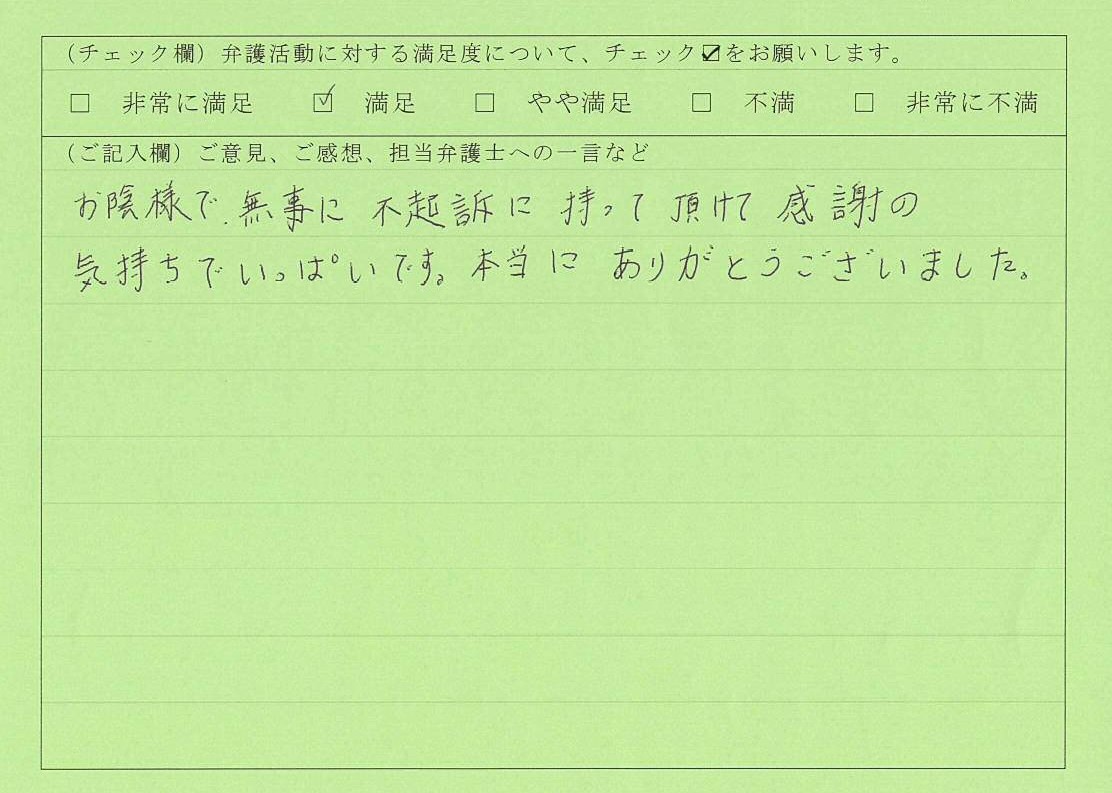 （チェック欄）弁護活動に対する満足度について、チェック☑をお願いします。
□ 非常に満足 ☑ 満足 □ やや満足 □ 不満 □ 非常に不満
（ご記入欄）ご意見、ご感想、担当弁護士への一言など
お陰様で、無事に 不起訴に 持って 頂けて 感謝の
気持ちでいっぱいです。本当に ありがとうございました。